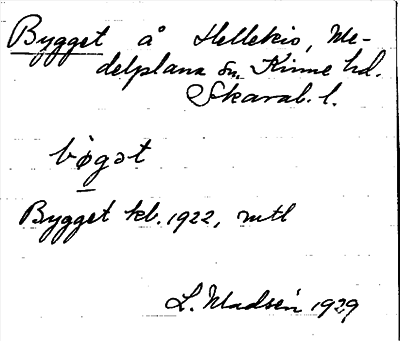 Bygget å Hellekis, Me-
delplana sn, Kinne hd.
Skarab. l.
bøgət
Bygget kb. 1922, mtl
L. Madsén 1929